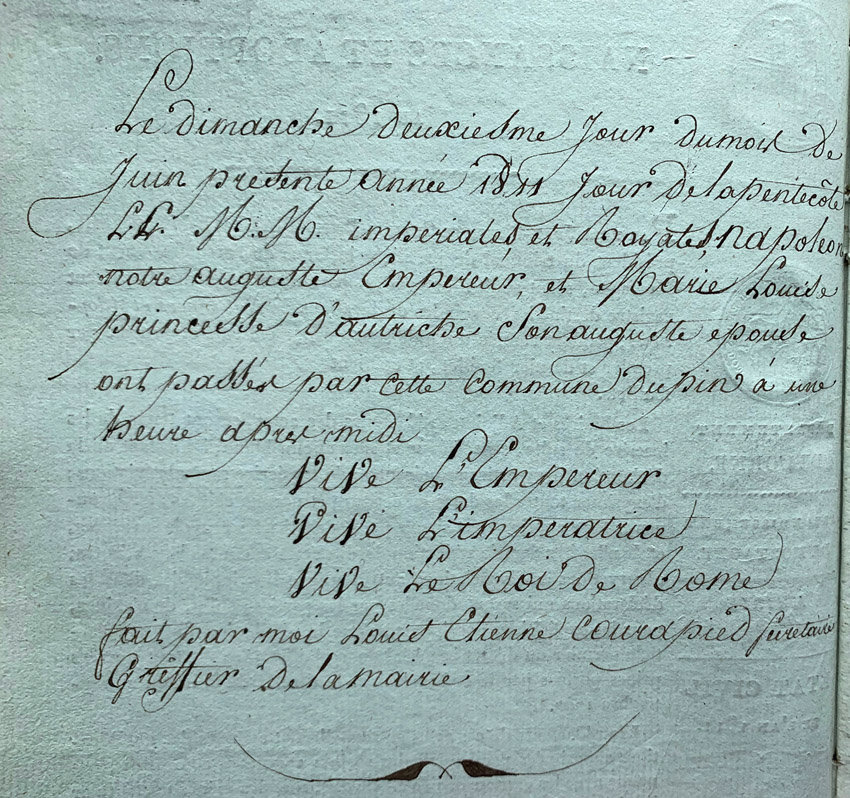 Le dimanche deuxiesme Jour dumois de
Juin presente année 1811 Jour Delapentecôte
LL. M.M. imperiales, et Royales, napoleon
notre auguste Empereur, et Marie Louise
princesse D'autriche Son auguste epouse
ont passés par cette commune Dupin à une
heure apres midi
Vive L'Empereur
Vive L'imperatrice
Vive Le Roi De Rome
fait par moi Louis Etienne courapied secretaire
Greffier Delamairie